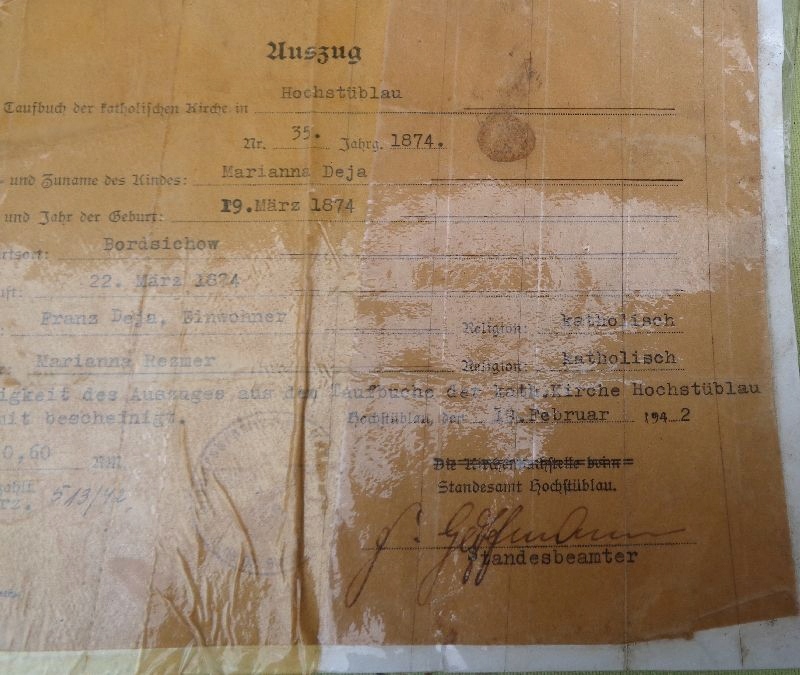 Auszug
Taufbuch der katholischen Kirche in Hochstüblau
Nr. 35. Jahrg. 1874.
- und Zuname des Kindes: Marianna Deja
und Jahr der Geburt: 19. März 1874
rtsort: Bordsichow
uft: 22. März 1874
Franz Deja, Einwohner Religion: katholisch
Marianna Rezmer Religion: katholisch
igkeit des Auszuges aus dem Taufbuche der kath.Kirche Hochstüblau
mit bescheinigt. Hochstüblau, den 19. Februar 194 2
0,60 RM.
Die Kirchenbuchstelle beim
513/42 Standesamt Hochstüblau.
Standesbeamter